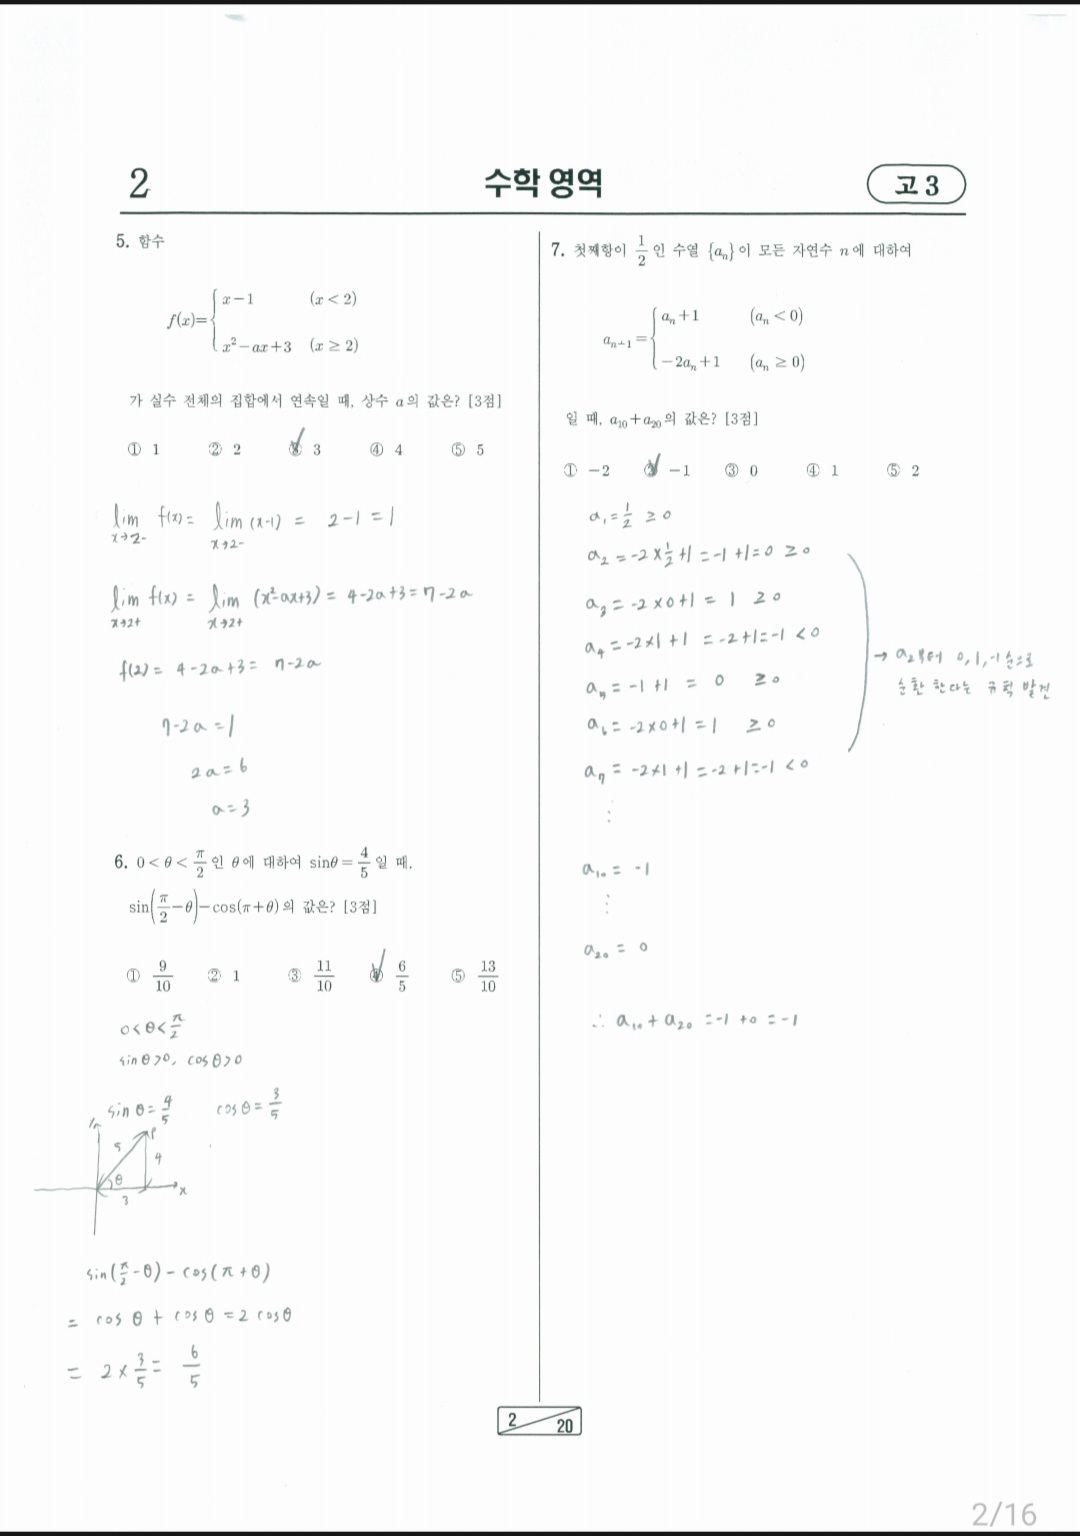 2
수학 영역
고 3
5. 함수
f(x)= { x−1 (x < 2)
x²−ax+3 (x ≥ 2)
가 실수 전체의 집합에서 연속일 때, 상수 a의 값은? [3점]
① 1 ② 2 ③ 3 ④ 4 ⑤ 5
lim x→2- f(x) = lim x→2- (x-1) = 2-1 = 1
lim x→2+ f(x) = lim x→2+ (x²-ax+3) = 4-2a+3 = 7-2a
f(2) = 4-2a+3 = 7-2a
7-2a = 1
2a = 6
a = 3
6. 0 < θ < π/2 인 θ에 대하여 sinθ = 4/5 일 때,
sin(π/2−θ)−cos(π+θ)의 값은? [3점]
① 9/10 ② 1 ③ 11/10 ④ 6/5 ⑤ 13/10
0<θ<π/2
sin θ>0, cos θ>0
sin θ = 4/5 cos θ = 3/5
y
P
5
4
θ
x
3
sin(π/2-θ) - cos(π+θ)
= cos θ + cos θ = 2 cos θ
= 2 × 3/5 = 6/5
7. 첫째항이 1/2 인 수열 {aₙ}이 모든 자연수 n에 대하여
aₙ₊₁ = { aₙ+1 (aₙ < 0)
−2aₙ+1 (aₙ ≥ 0)
일 때, a₁₀+a₂₀의 값은? [3점]
① −2 ② −1 ③ 0 ④ 1 ⑤ 2
a₁ = 1/2 ≥ 0
a₂ = -2×1/2+1 = -1+1 = 0 ≥ 0
a₃ = -2×0+1 = 1 ≥ 0
a₄ = -2×1+1 = -2+1 = -1 < 0
→ a₂부터 0, 1, -1 순으로
순환 한다는 규칙 발견
a₅ = -1+1 = 0 ≥ 0
a₆ = -2×0+1 = 1 ≥ 0
a₇ = -2×1+1 = -2+1 = -1 < 0
⋮
a₁₀ = -1
⋮
a₂₀ = 0
∴ a₁₀ + a₂₀ = -1+0 = -1
2 20
2/16